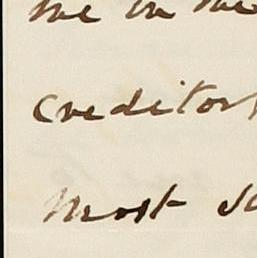 me in the
Creditors
Most